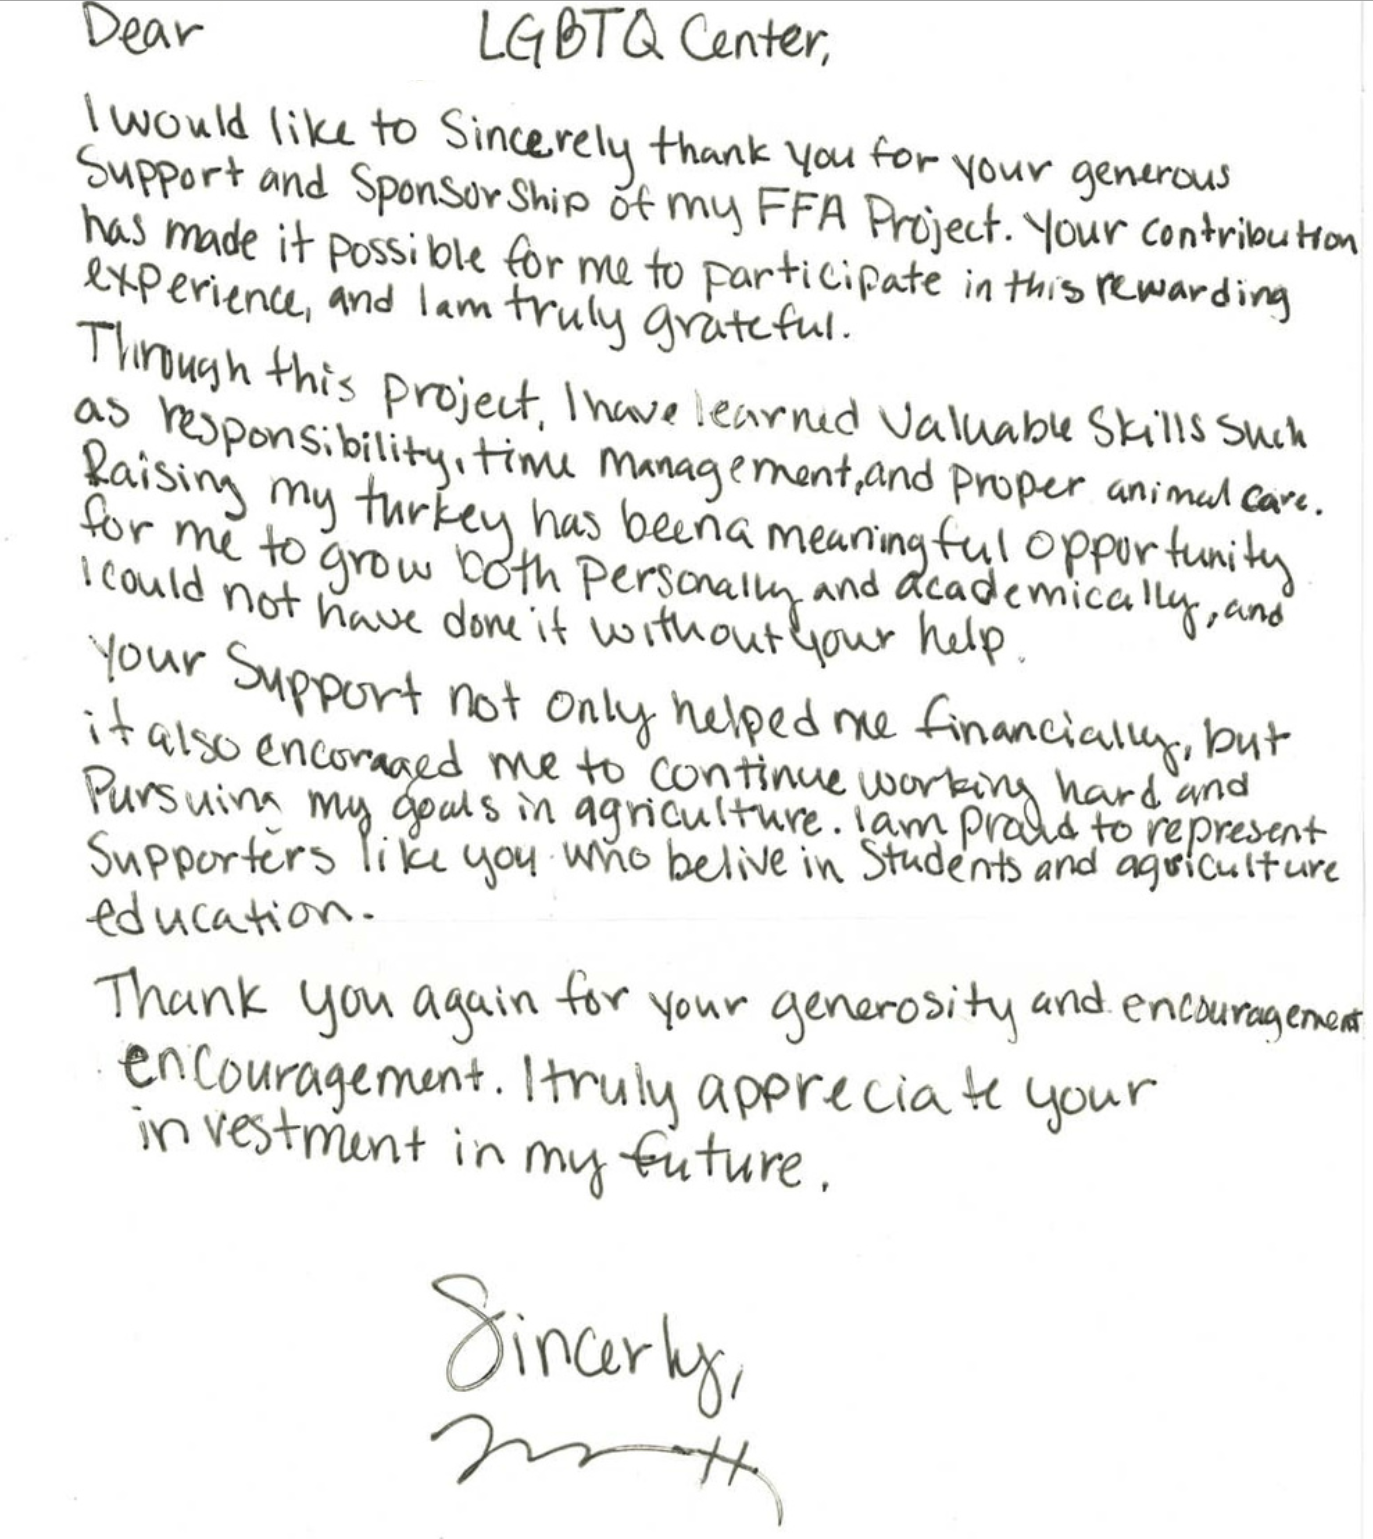 Dear LGBTQ Center,
I would like to Sincerely thank you for your generous
Support and Sponsorship of my FFA Project. Your contribution
has made it possible for me to participate in this rewarding
experience, and I am truly grateful.
Through this project, I have learned valuable Skills such
as responsibility, time management, and proper animal care.
Raising my turkey has been a meaningful opportunity
for me to grow both personally and academically, and
I could not have done it without your help.
Your Support not only helped me financially, but
it also encoraged me to continue working hard and
Pursuing my goals in agriculture. I am proud to represent
Supporters like you who belive in Students and agriculture
education.
Thank you again for your generosity and encouragement
encouragement. I truly appreciate your
investment in my future.
Sincerly,